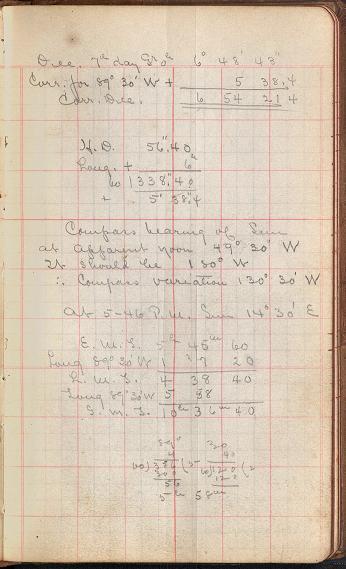 Dec. 7th day 8h 0m 6° 48' 43"
Corr. for 89° 30' W + 5 38.4
Corr. Dec. 6 54 21 4
H.D. 56".40
Long. + 6h
60 | 338."40
+ 5' 38".4
Compass bearing of Sun
at apparent noon 49° 30' W
It should be 180° W
∴ Compass variation 130° 30' W
At 5-46 P.M. Sun 14° 30' E
E. M. T. 5h 45m 60
Long 89° 30' W 1 7 20
L. M. T. 4 38 40
Long 89° 30' W 5 58
G. M. T. 10h 36m 40
30
4
60) 356 (5 60) 120 (2
300 120
56
5h 58m